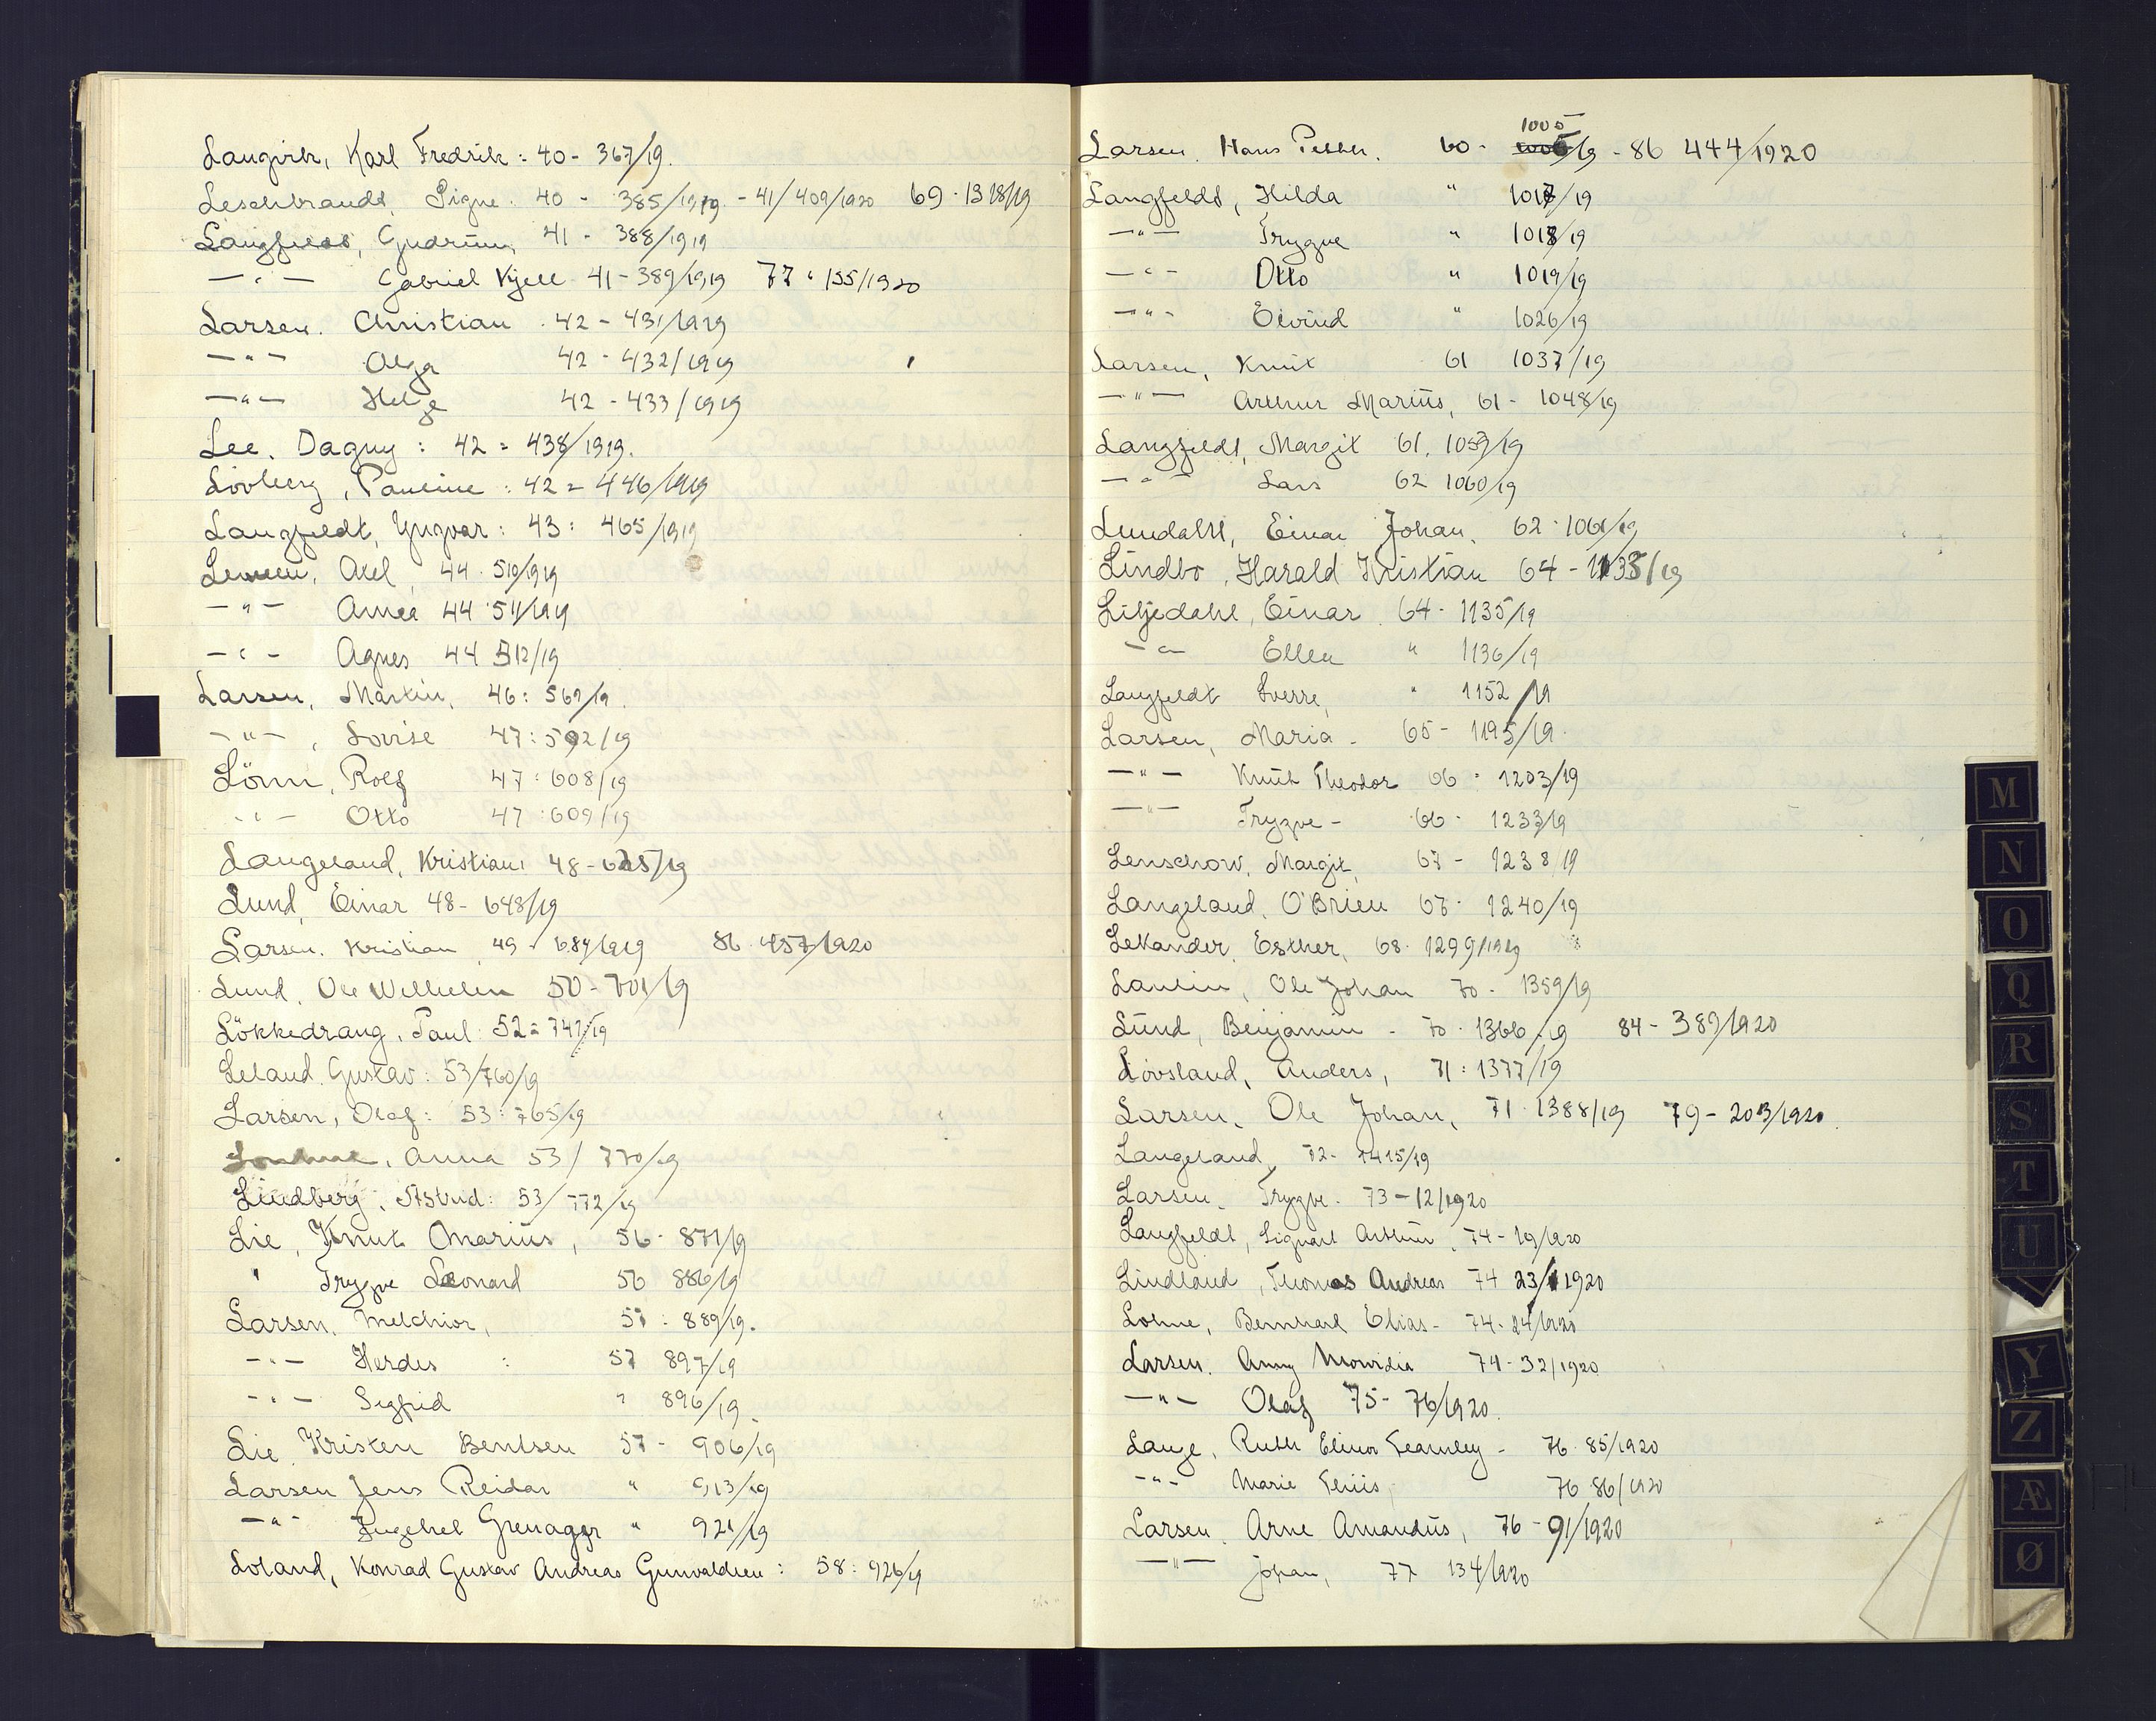 Langvik, Karl Fredrik: 40- 367/19.
Leschbrandt, Signe. 40 - 385/1919. - 41/409/1920 69 - 1318/19
Langfeldt, Gudrun, 41 - 388/1919
—"— Gabriel Kjell 41-389/1919 77 " 155/1920
Larsen. Christian . 42 - 431/1919
—"— Olga 42 - 432/1919
—"— Helge 42 - 433/1919
Lee. Dagny : 42 = 438/1919.
Lövberg, Pauline : 42 = 446/1919
Langfeldt, Yngvar : 43 : 465/1919
Axel, 44 . 510/1919
—"— 44 . 511/1919
—"— Agnes 44 512/19
Larsen, Martin, 46 : 567/19.
—"—, Lovise 47 : 592/19
Lönn, Rolf 47 : 608/19
—"— Otto 47 : 609/19
Langeland, Kristian 48 - 625/19
Lund, Einar 48 - 648/19
Larsen. Kristian 49 - 684/1919 86 . 457/1920
Lund, Ole Wilhelm 50 - 701/19
Lökkedrang, Paul : 52 = 747/19
Leland. Gustav : 53/760/19
Larsen, Olaf : 53 : 765/19
Anna 53/ 770/19
Lindberg, Astrid : 53/772/19
Lie, Knut Marius, 56 - 871/19
" Trygve Leonard 56 886/19
Larsen. Melchior, 57 : 889/19.
—"— Herdis : 57 897/19
—"— Sigfrid " 896/19.
Lie Kristen Bentsen 57 - 906/19
Larsen Jens Reidar " 913/19
—"— Ingebret Grenager " 921/19
Loland, Konrad Gustav Andreas Gunvaldsen : 58 : 926/19
1005
Larsen. Hans Petter. 60 - 1006/19 - 86 444/1920
Langfeldt, Hilda " 1017/19
—"— Trygve " 1018/19
—"— Otto " 1019/19
—"— Eivind " 1026/19
Larsen, Knut 61 1037/19
—"— Arthur Marius, 61 - 1048/19
Langfeldt, Margit 61. 1059/19
—"— Lars 62 1060/19
Lundahl, Einar Johan, 62 - 1061/19
Lindbo, Harald Kristian 64 - 1133/19
Liljedahl, Einar 64 - 1135/19
—"— Ellen " 1136/19
Langfeldt Sverre, " 1152/19
Larsen, Maria - 65 - 1195/19
—"— Knut Theodor 66 - 1203/19
—"— Trygve - 66 - 1233/19
Lenschow, Margit, 67 - 1238/19
Langeland, O'Brien 67 - 1240/19
Lekander, Esther, 68 - 1299/1919
Ole Johan 70 - 1359/19
Lund, Benjamin - 70 - 1366/19 84 - 389/1920
Lövsland, Anders, 71 : 1377/19
Larsen, Ole Johan, 71 - 1388/19 79 - 203/1920.
Langeland, 72 - 1415/19
Larsen, Trygve. 73 - 12/1920
Langfeldt, Sigvart Arthur, 74 - 19/1920
Lindland, Thomas Andreas 74 23/1920
Lohne, Bernhard Elias - 74 - 24/1920
Larsen. Anny 74 - 32/1920
—"— Olaf 75 - 76/1920.
Lange, Ruth Elinor Fearnley - 76 - 85/1920
—"— Marie 76 86/1920
Larsen. Arne Amandus, 76 - 91/1920
—"— Johan, 77 134/1920
M
N
O
Q
R
S
T
U
Y
Z
Æ
Ø